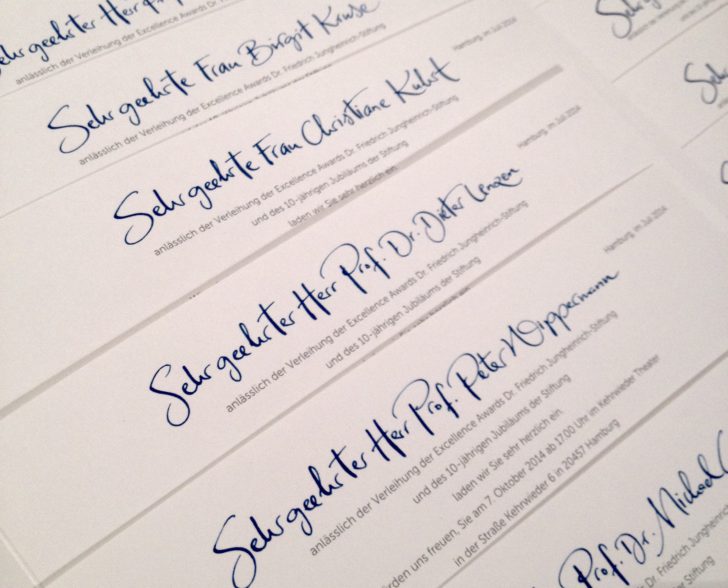 Sehr geehrter Herr
anlässlich der Verleihung der Excellence Awards Dr. Friedrich Jungheinrich-Stiftung
Sehr geehrte Frau Birgit Kruse
Hamburg, im Juli 2014
anlässlich der Verleihung der Excellence Awards Dr. Friedrich Jungheinrich-Stiftung
Sehr geehrte Frau Christiane Kuhrt
Hamburg, im Juli 2014
anlässlich der Verleihung der Excellence Awards Dr. Friedrich Jungheinrich-Stiftung
und des 10-jährigen Jubiläums der Stiftung
laden wir Sie sehr herzlich ein.
Sehr geehrter Herr Prof. Dr. Dieter Lenzen
Hamburg, im Juli 2014
anlässlich der Verleihung der Excellence Awards Dr. Friedrich Jungheinrich-Stiftung
und des 10-jährigen Jubiläums der Stiftung
Sehr geehrter Herr Prof. Peter Wippermann
anlässlich der Verleihung der Excellence Awards Dr. Friedrich Jungheinrich-Stiftung
und des 10-jährigen Jubiläums der Stiftung
laden wir Sie sehr herzlich ein.
uns freuen, Sie am 7. Oktober 2014 ab 17.00 Uhr im Kehrwieder Theater
in der Straße Kehrwieder 6 in 20457 Hamburg
Prof. Dr. Michael